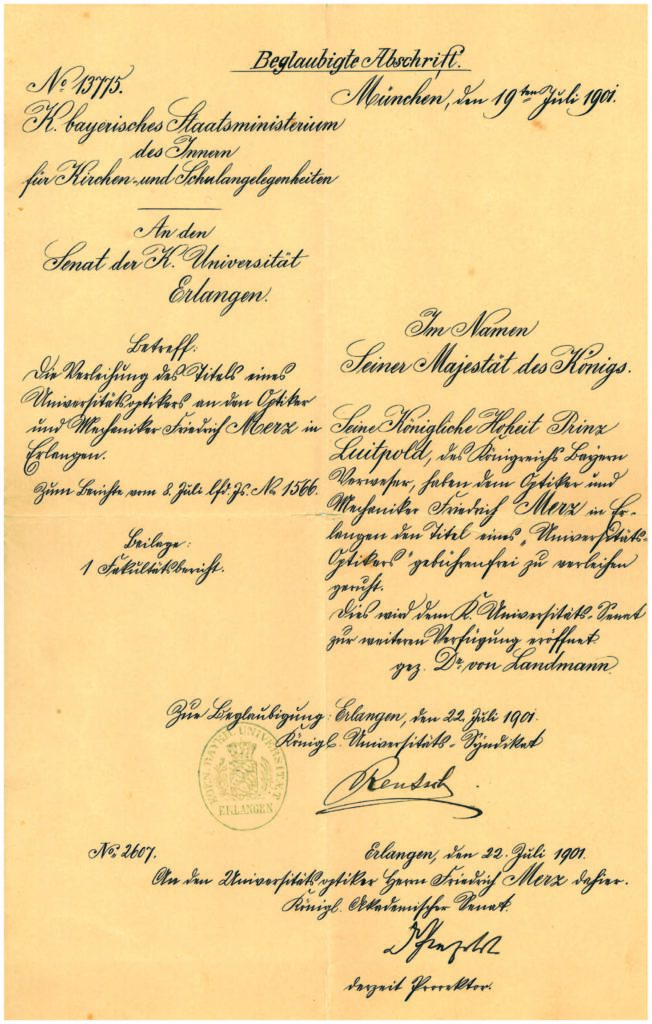 Beglaubigte Abschrift.
No 13775.
München, den 19ten Juli 1901.
K. bayerisches Staatsministerium
des Innern
für Kirchen- und Schulangelegenheiten
An den
Senat der K. Universität
Erlangen.
Betreff:
Die Verleihung des Titels eines
Universitätsoptikers an den Optiker
und Mechaniker Friedrich Merz in
Erlangen.
Zum Berichte vom 8. Juli lfd. Js. No 1566.
Beilage:
1 Fakultätsbericht.
Im Namen
Seiner Majestät des Königs.
Seine Königliche Hoheit Prinz
Luitpold, des Königreichs Bayern
Verweser, haben dem Optiker und
Mechaniker Friedrich Merz in Er-
langen den Titel eines „Universitäts-
Optikers" gebührenfrei zu verleihen
geruht.
Dies wird dem K. Universitäts-Senat
zur weiteren Verfügung eröffnet.
gez. Dr. von Landmann.
Zur Beglaubigung: Erlangen, den 22. Juli 1901.
Königl. Universitäts-Syndikat
KOEN. BAYER. UNIVERSITÆT
ERLANGEN
No. 2607.
Erlangen, den 22. Juli 1901.
An den Universitätsoptiker Herrn Friedrich Merz dahier.
Königl. Akademischer Senat.
derzeit Prorektor.